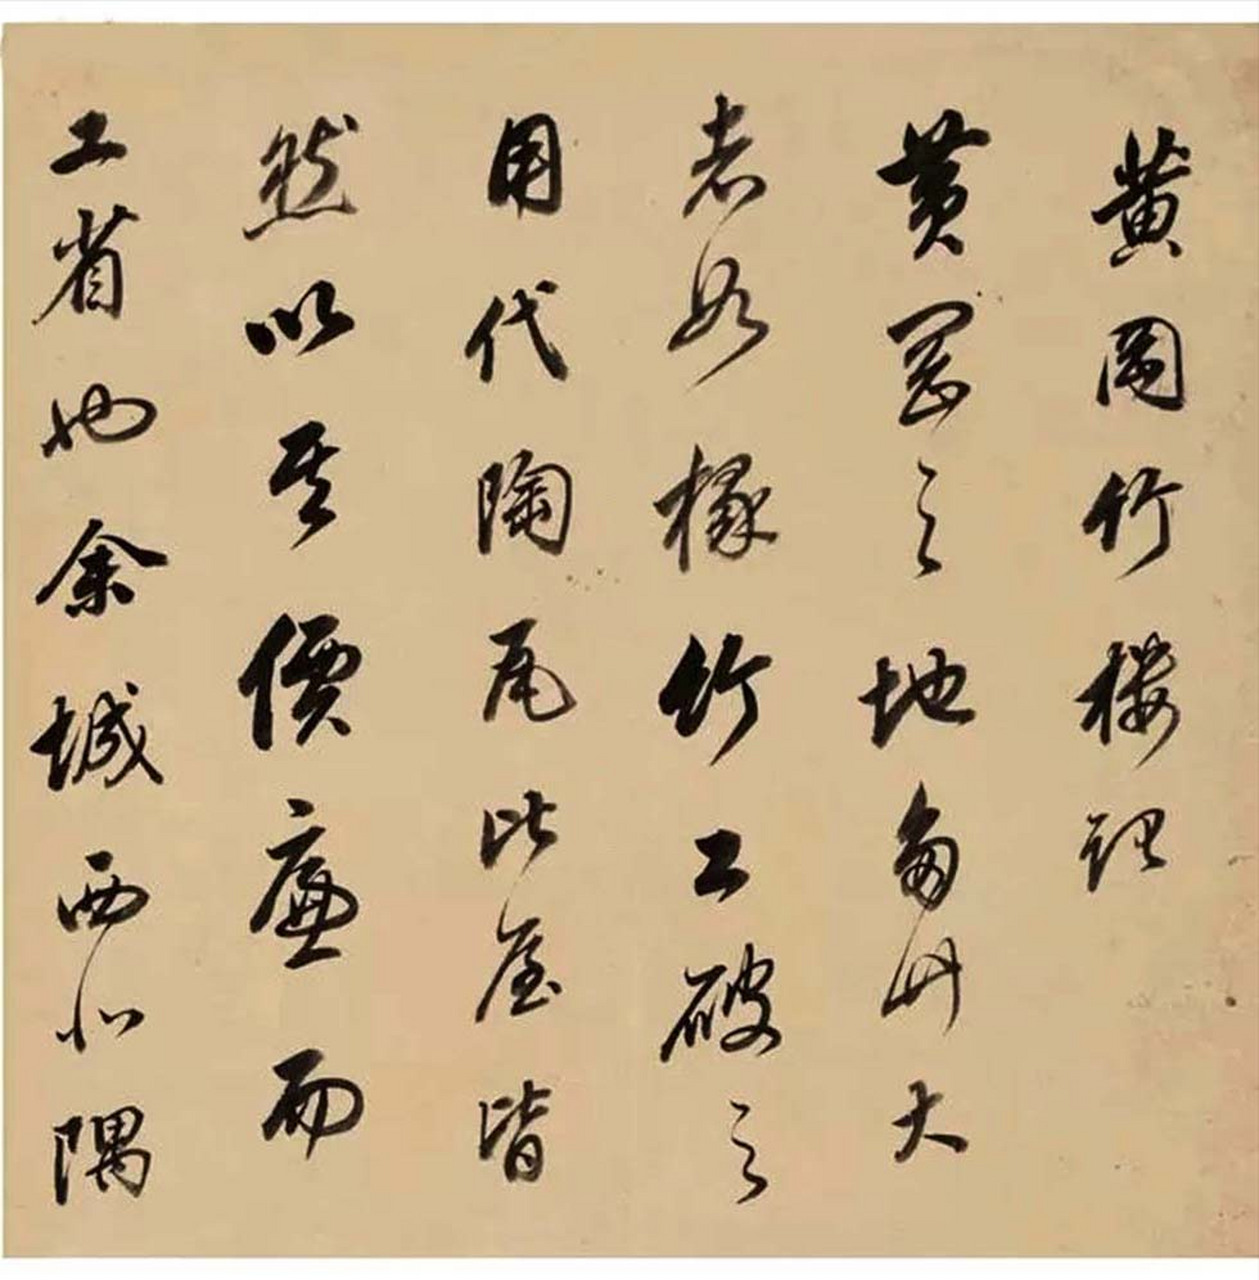 黄岡竹楼記
黄岡之地多竹大
者如椽竹工破之
用代陶瓦比屋皆
然以其價廉而
工省也余城西北隅